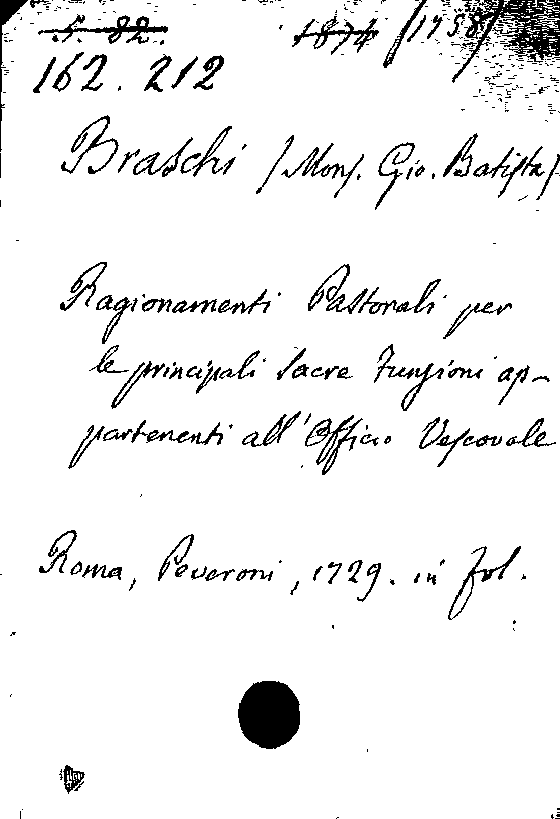 5. 82. 1874 /1738/
162. 212
Braschi /Mons. Gio. Batista/
Ragionamenti Pastorali per
le principali sacre funzioni ap-
partenenti all'Officio Vescovale
Roma, Peveroni, 1729. in fol.